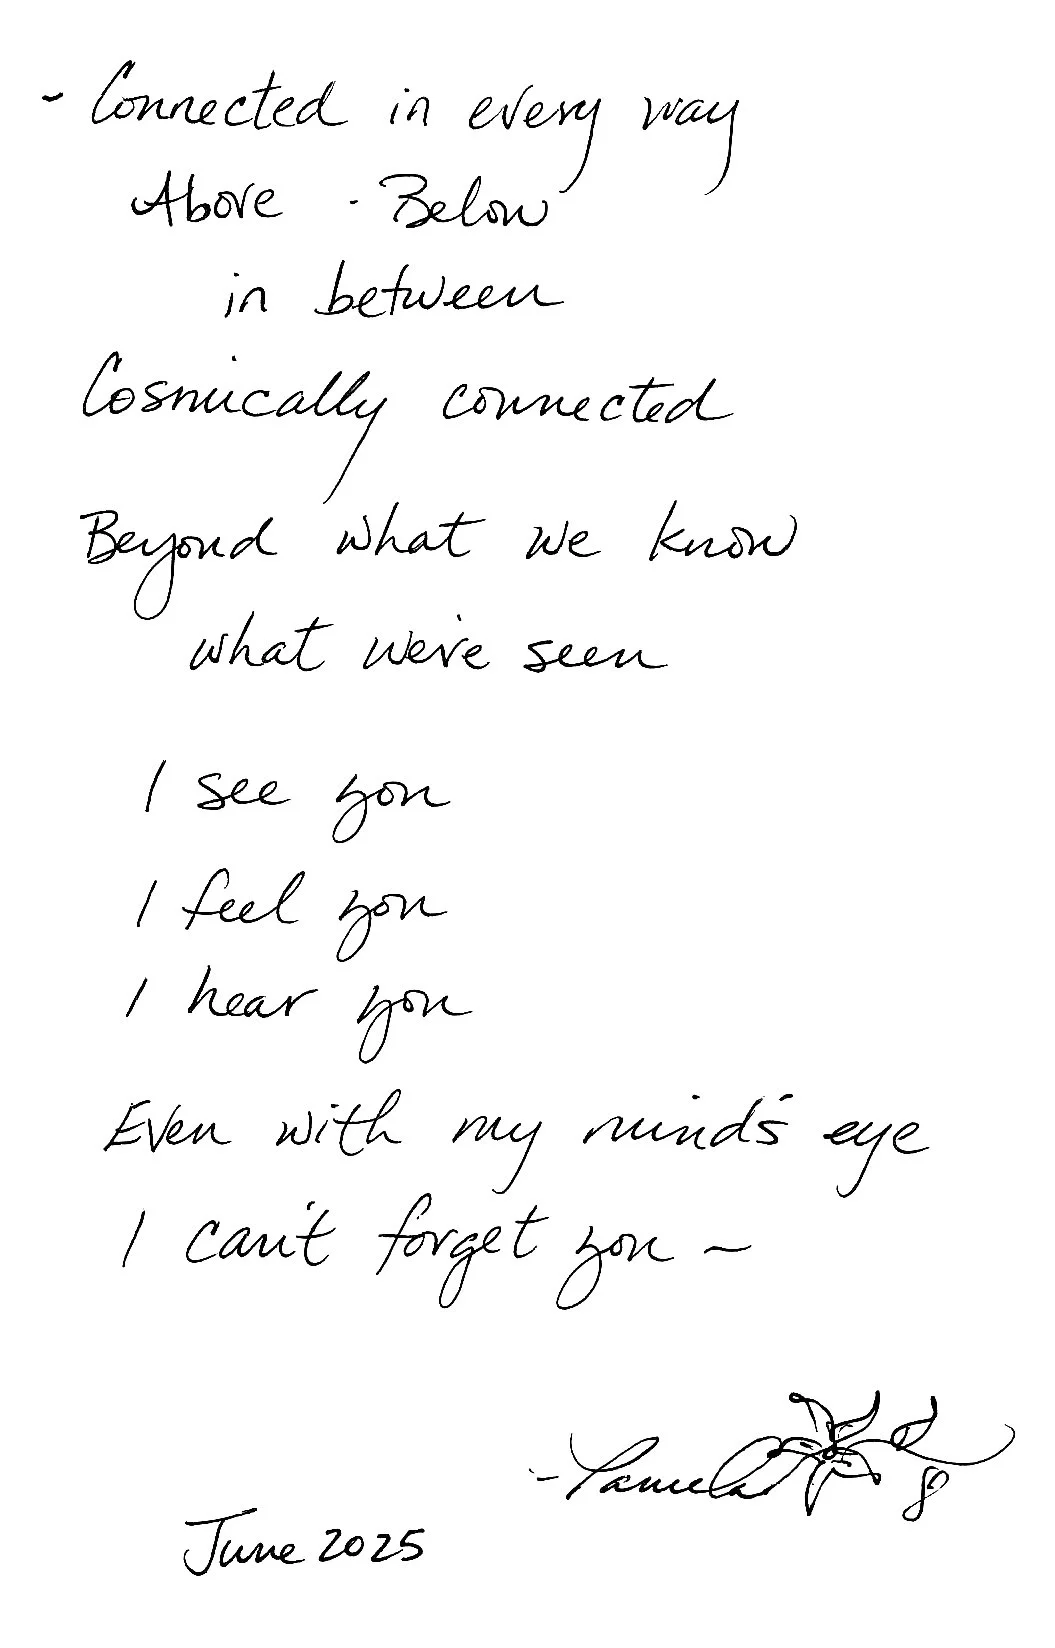 - Connected in every way
Above · Below
in between
Cosmically connected
Beyond what we know
what we've seen
I see you
I feel you
I hear you
Even with my mind's eye
I can't forget you ~
- Pamela
June 2025